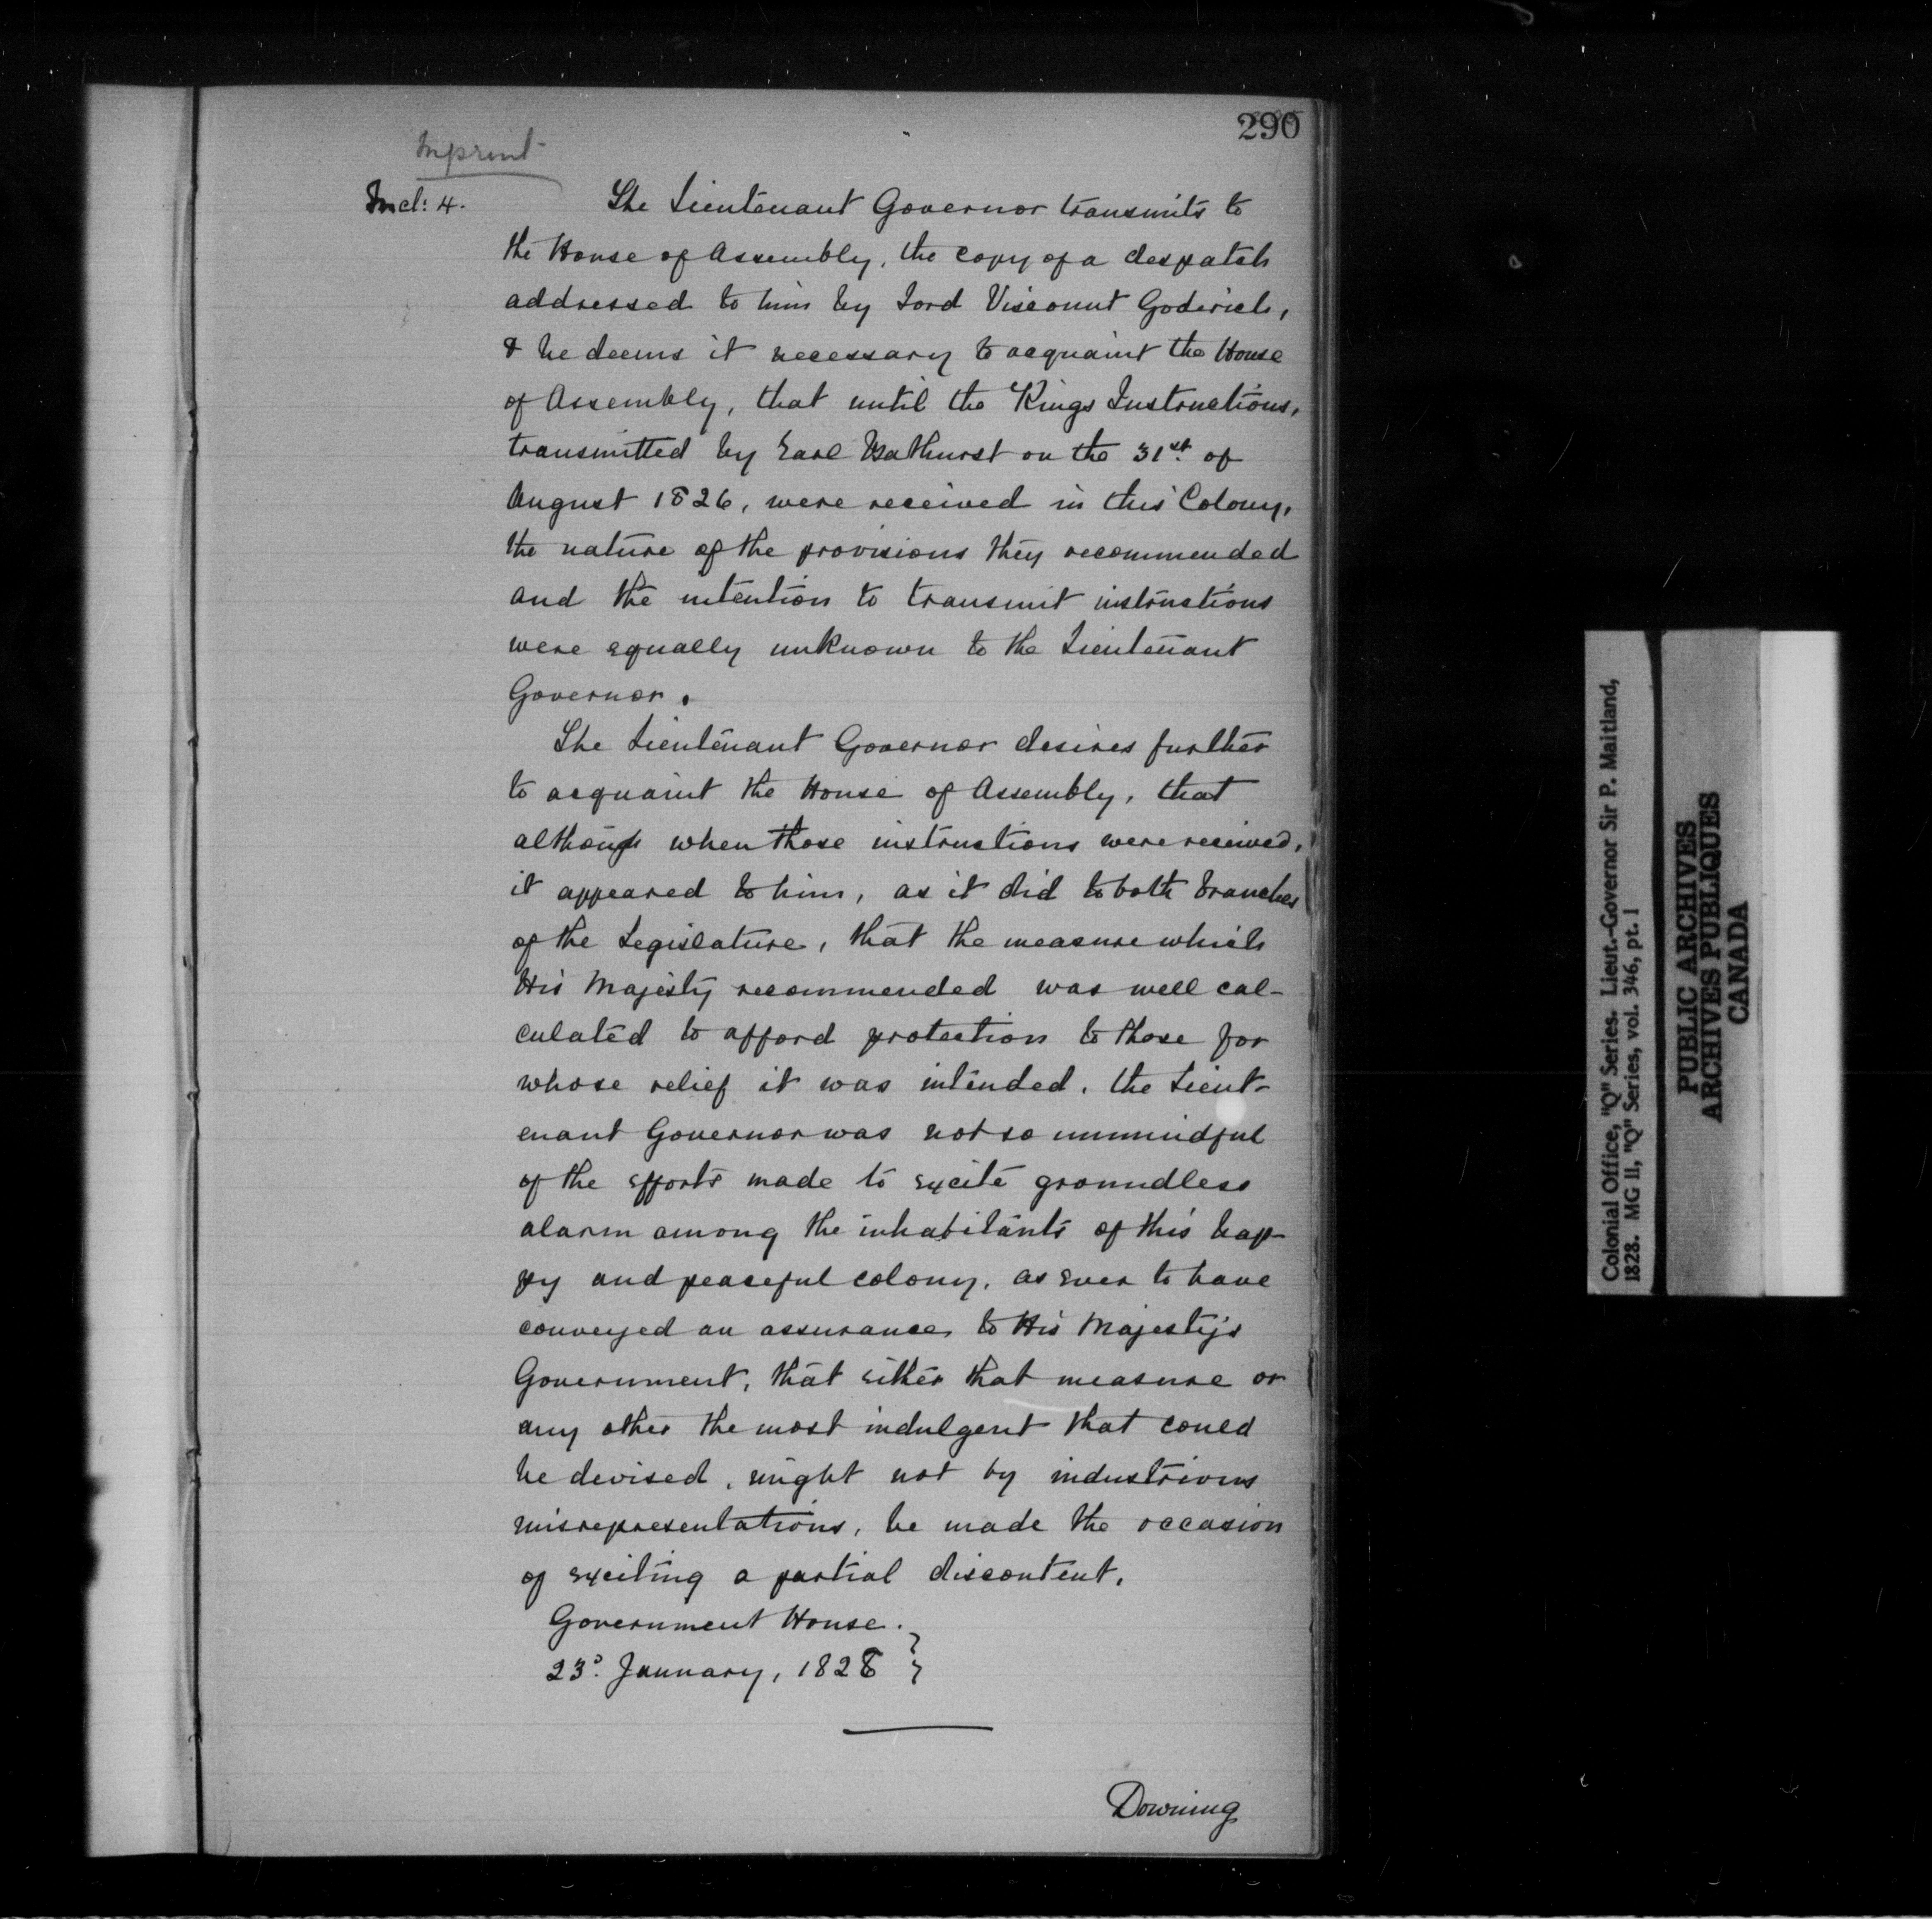 290
In print
Incl: 4.
The Lieutenant Governor transmits to
the House of Assembly, the copy of a despatch
addressed to him by Lord Viscount Goderich,
& he deems it necessary to acquaint the House
of Assembly, that until the Kings Instructions,
transmitted by Earl Bathurst on the 31st. of
August 1826, were received in this Colony,
the nature of the provisions they recommended
and the intention to transmit instructions
were equally unknown to the Lieutenant
Governor.
The Lieutenant Governor desires further
to acquaint the House of Assembly, that
although when those instructions were received,
it appeared to him, as it did to both branches
of the Legislature, that the measure which
His Majesty recommended was well cal-
culated to afford protection to those for
whose relief it was intended, the Lieut-
enant Governor was not so unmindful
of the efforts made to excite groundless
alarm among the inhabitants of this hap-
py and peaceful colony, as ever to have
conveyed an assurance, to His Majesty's
Government, that either that measure or
any other the most indulgent that could
be devised, might not by industrious
misrepresentations, be made the occasion
of exciting a partial discontent.
Government House.
23d. January, 1828 }
Downing
Colonial Office, "Q" Series. Lieut.-Governor Sir P. Maitland,
1828. MG 11, "Q" Series, vol. 346, pt. 1
PUBLIC ARCHIVES
ARCHIVES PUBLIQUES
CANADA